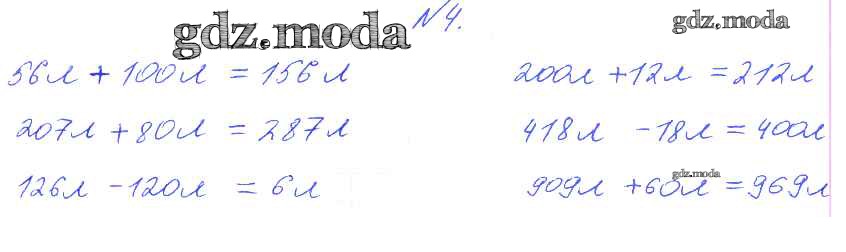 gdz.moda №4. gdz.moda
56л + 100л = 156л
207л + 80л = 287л
126л - 120л = 6л
200л + 12л = 212л
418л - 18л = 400л
909л + 60л = 969л
gdz.moda